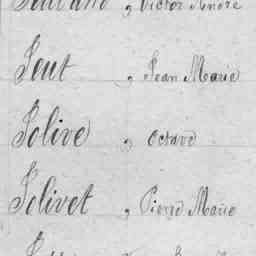 , Victor André
Jeut , Jean Marie
Jolive , Octave
Jolivet , Pierre Marie